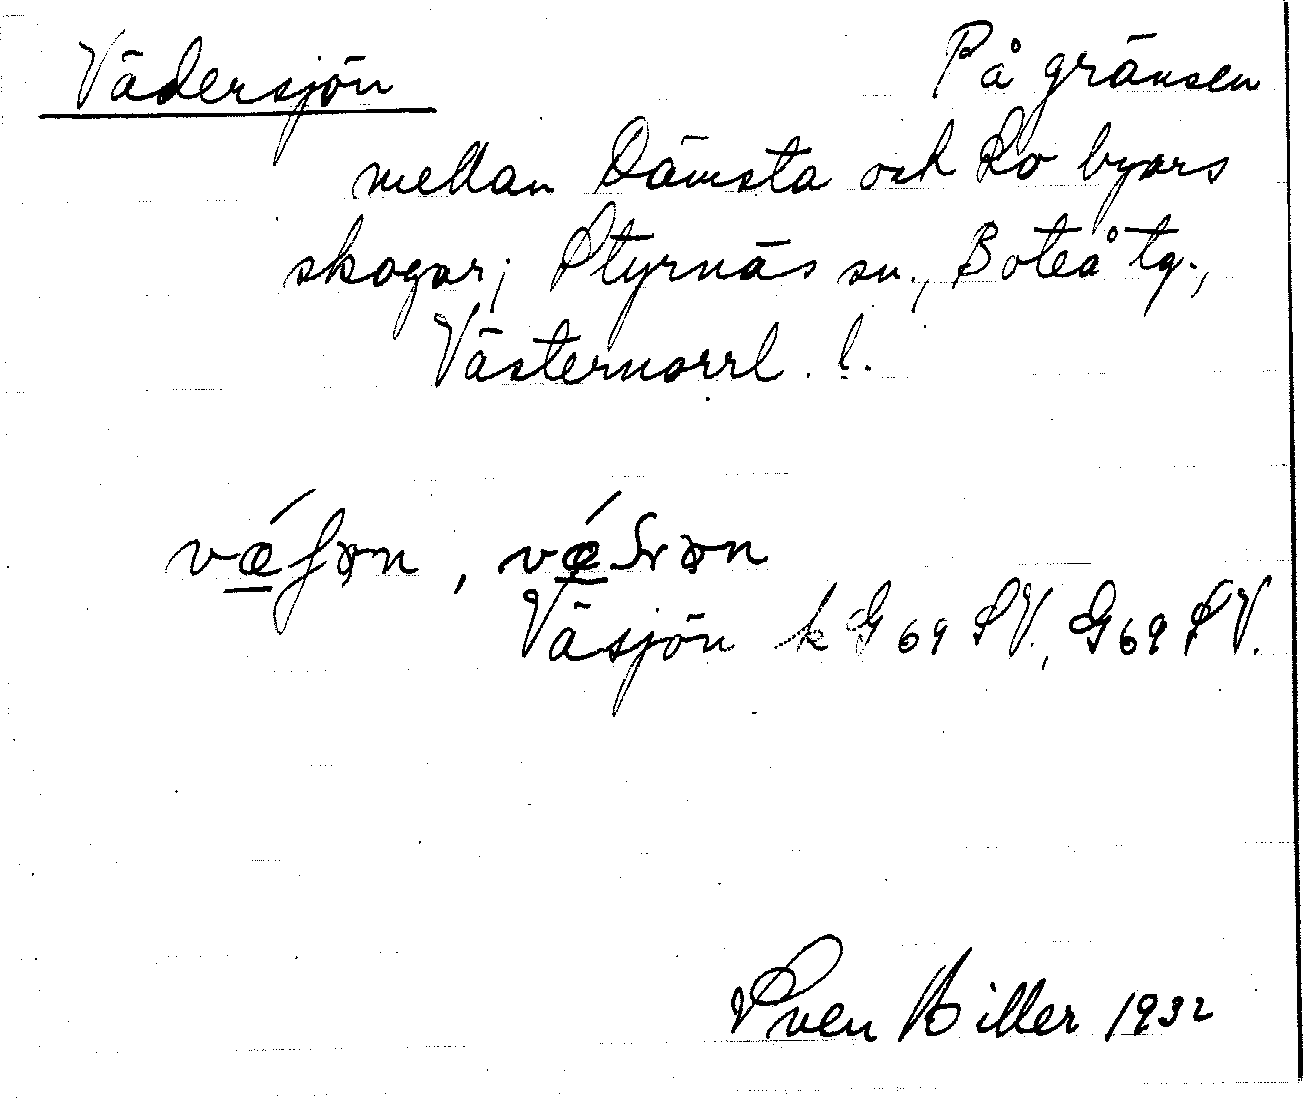 Vädersjön På gränsen
mellan Dämsta och Lo byars
skogar; Styrnäs sn., Boteå tg.,
Västernorrl. l.
Väsjön k G 69 SV., G 69 SV.
Sven Hiller 1932